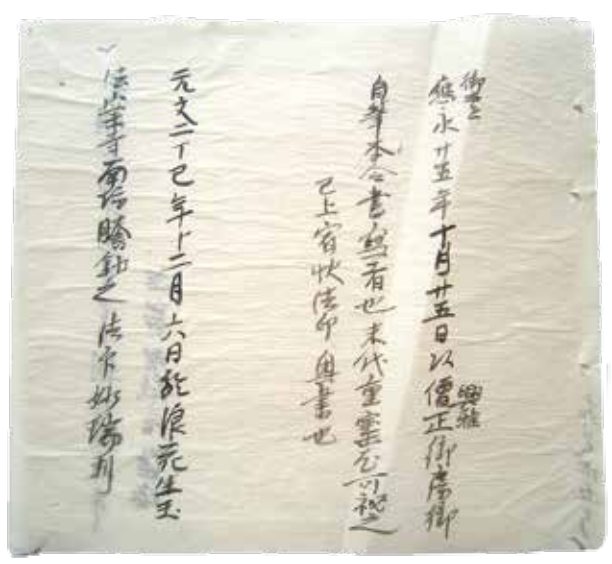 御本云
應永廿五年十月廿五日以僧正御房御
興雅
自筆本令書寫者也末代重寶尤可秘之
已上宥快法印奥書也
元文二丁巳年十二月六日於浪花生玉
法案寺南坊謄之 妙瑞判